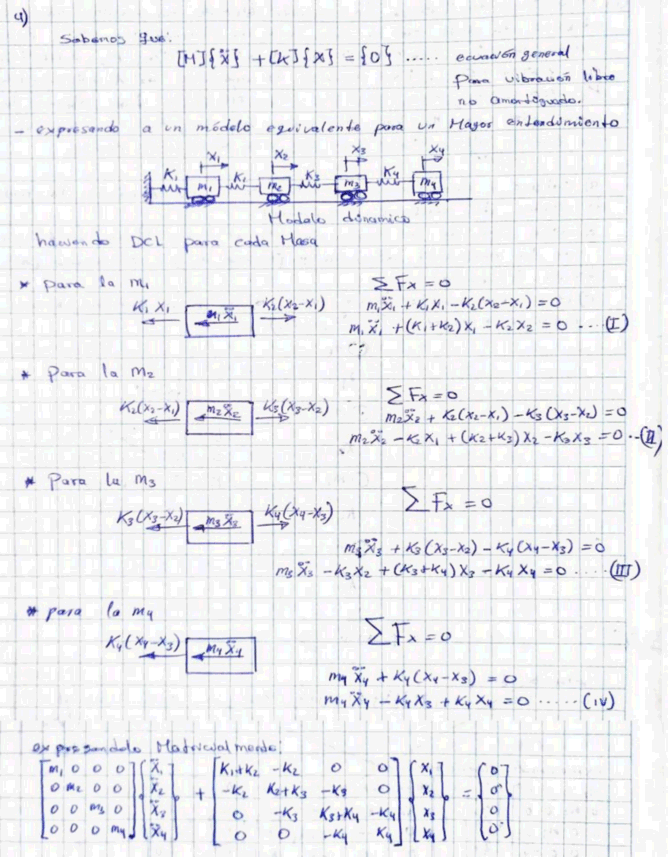 4)
Sabemos que:
[M]{ẍ} + [K]{x} = {0} ..... ecuación general
para vibración libre
no amortiguado.
- expresando a un módelo equivalente para un Mayor entendimiento
x₁ x₂ x₃ x₄
K₁ m₁ K₁ m₂ K₃ m₃ K₄ m₄
Modelo dinamico
haciendo DCL para cada Masa
* para la m₁
ΣFx = 0
K₁x₁ m₁ẍ₁ K₂(x₂-x₁)
m₁ẍ₁ + K₁x₁ - K₂(x₂-x₁) = 0
m₁ẍ₁ + (K₁+K₂)x₁ - K₂x₂ = 0 ... (I)
* Para la m₂
ΣFx = 0
K₂(x₂-x₁) m₂ẍ₂ K₃(x₃-x₂)
m₂ẍ₂ + K₂(x₂-x₁) - K₃(x₃-x₂) = 0
m₂ẍ₂ - K₂x₁ + (K₂+K₃)x₂ - K₃x₃ = 0 ..(II)
* Para la m₃
ΣFx = 0
K₃(x₃-x₂) m₃ẍ₃ K₄(x₄-x₃)
m₃ẍ₃ + K₃(x₃-x₂) - K₄(x₄-x₃) = 0
m₃ẍ₃ - K₃x₂ + (K₃+K₄)x₃ - K₄x₄ = 0 ..... (III)
* para la m₄
ΣFx = 0
K₄(x₄-x₃) m₄ẍ₄
m₄ẍ₄ + K₄(x₄-x₃) = 0
m₄ẍ₄ - K₄x₃ + K₄x₄ = 0 ...... (IV)
expresandolo Matricialmente:
[m₁ 0 0 0] {ẍ₁} + [K₁+K₂ -K₂ 0 0] {x₁} = {0}
[0 m₂ 0 0] {ẍ₂} [-K₂ K₂+K₃ -K₃ 0] {x₂} {0}
[0 0 m₃ 0] {ẍ₃} [0 -K₃ K₃+K₄ -K₄] {x₃} {0}
[0 0 0 m₄] {ẍ₄} [0 0 -K₄ K₄] {x₄} {0}